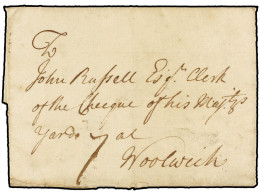 To
John Russell Esqr. Clerk
of the Cheque of his Majtys
Yards 7 at
Woolwich